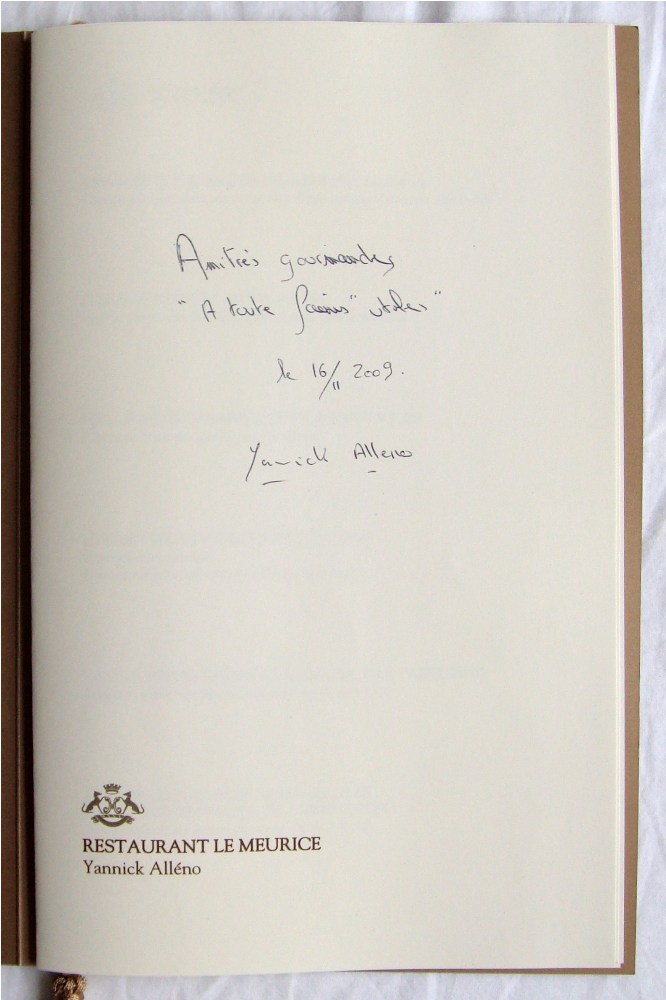 Amitiés gourmandes
"A toute utiles"
le 16/11 2009.
Yannick Alleno
RESTAURANT LE MEURICE
Yannick Alléno